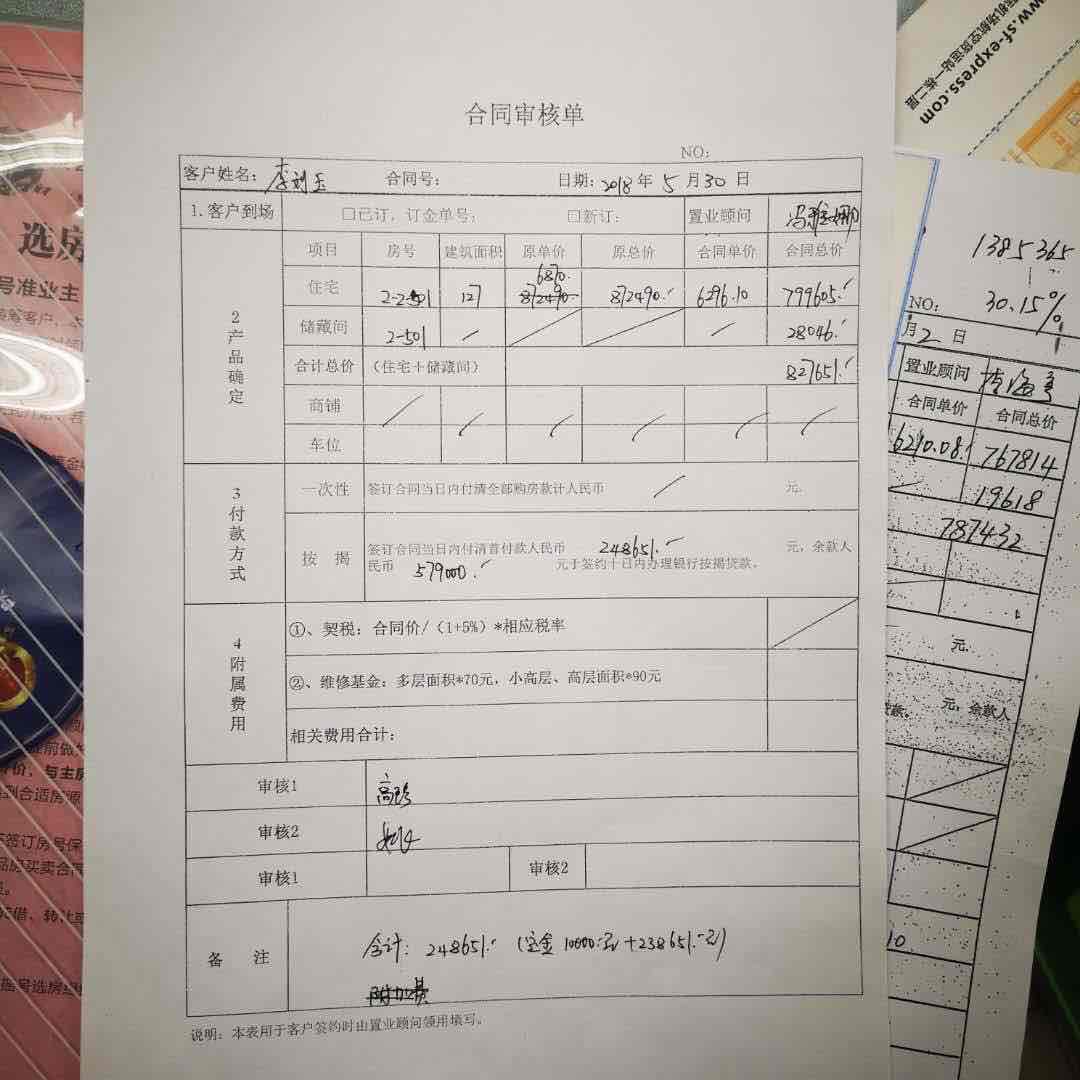 合同审核单
NO:
客户姓名: 李刘玉 合同号: 日期: 2018 年 5 月 30 日
1.客户到场 □已订,订金单号: □新订: 置业顾问
2产品确定
项目 房号 建筑面积 原单价 原总价 合同单价 合同总价
住宅 2-2-501 127 6870. 872490. 872490.- 6296.10 799605.-
储藏间 2-501 / / / / 28046.-
合计总价 (住宅+储藏间) 827651.-
商铺 / / / / / /
车位
3付款方式
一次性 签订合同当日内付清全部购房款计人民币 / 元.
按 揭 签订合同当日内付清首付款人民币 248651.- 元,余款人
民币 579000.- 元于签约十日内办理银行按揭贷款。
4附属费用
①、契税: 合同价/(1+5%)*相应税率
②、维修基金: 多层面积*70元, 小高层、高层面积*90元
相关费用合计:
审核1
审核2
审核1 审核2
备 注 合计: 248651.- (定金 10000元 +238651.-元)
附加费
说明: 本表用于客户签约时由置业顾问领用填写。
www.sf-express.com
1385365
30.15%
NO:
月2日
置业顾问
合同单价 合同总价
6210.08 767814
19618
787432
元.
元,余款人
款。
10
选房
号准业主